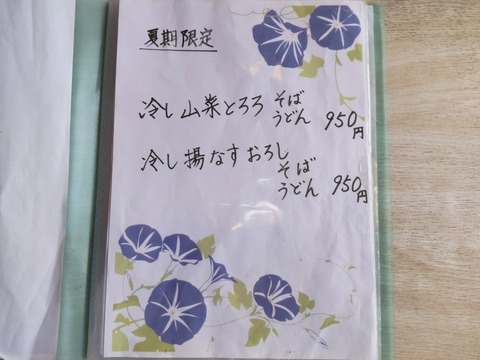 夏期限定
冷し山菜とろろ そば
うどん 950円
冷し揚なすおろし
そば
うどん 950円